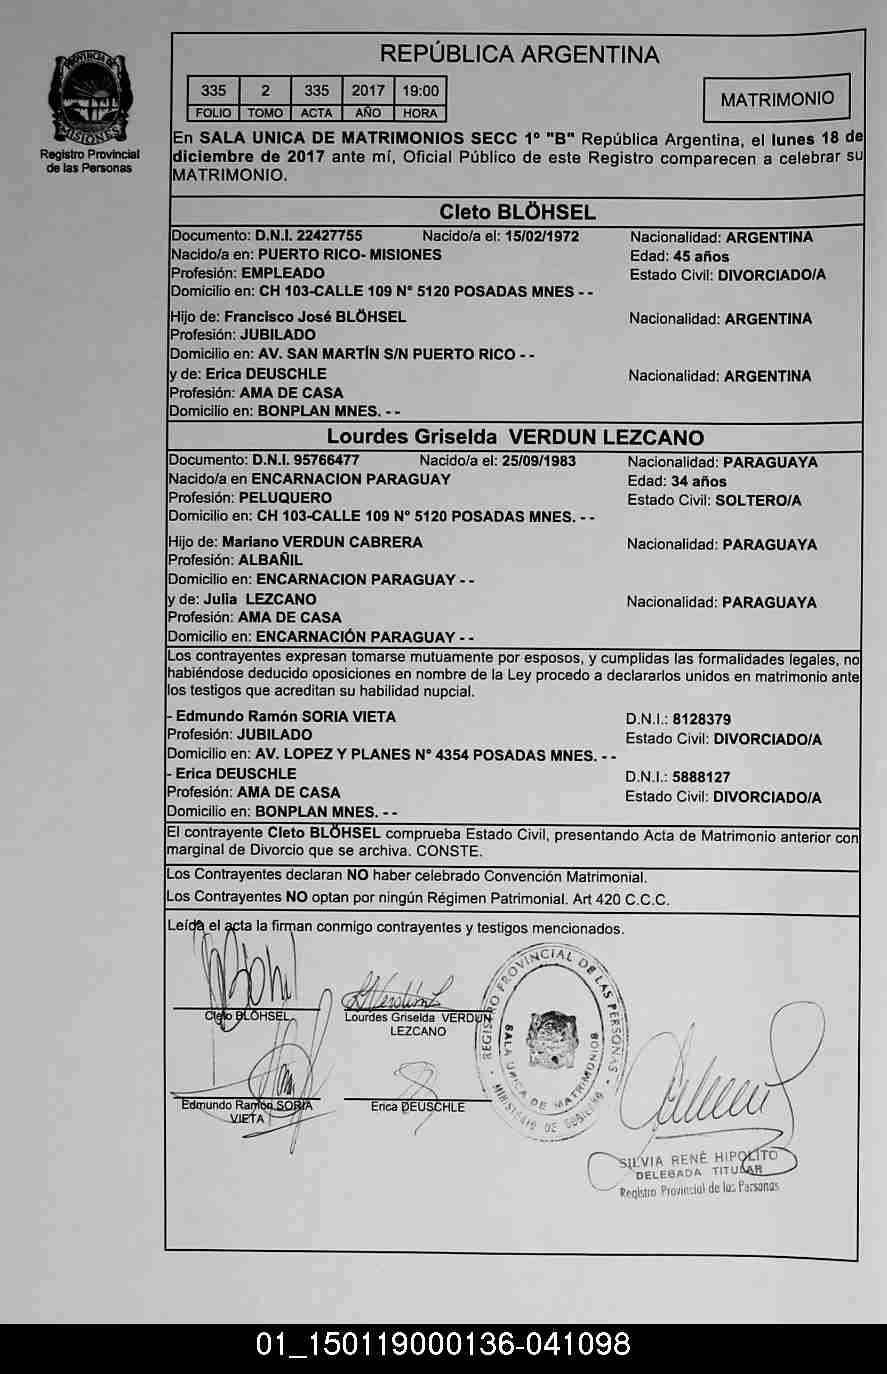 REPÚBLICA ARGENTINA
PROVINCIA DE
MISIONES
Registro Provincial
de las Personas
335 2 335 2017 19:00
FOLIO TOMO ACTA AÑO HORA
MATRIMONIO
En SALA UNICA DE MATRIMONIOS SECC 1º "B" República Argentina, el lunes 18 de
diciembre de 2017 ante mí, Oficial Público de este Registro comparecen a celebrar su
MATRIMONIO.
Cleto BLÖHSEL
Documento: D.N.I. 22427755 Nacido/a el: 15/02/1972 Nacionalidad: ARGENTINA
Nacido/a en: PUERTO RICO- MISIONES Edad: 45 años
Profesión: EMPLEADO Estado Civil: DIVORCIADO/A
Domicilio en: CH 103-CALLE 109 N° 5120 POSADAS MNES - -
Hijo de: Francisco José BLÖHSEL Nacionalidad: ARGENTINA
Profesión: JUBILADO
Domicilio en: AV. SAN MARTÍN S/N PUERTO RICO - -
y de: Erica DEUSCHLE Nacionalidad: ARGENTINA
Profesión: AMA DE CASA
Domicilio en: BONPLAN MNES. - -
Lourdes Griselda VERDUN LEZCANO
Documento: D.N.I. 95766477 Nacido/a el: 25/09/1983 Nacionalidad: PARAGUAYA
Nacido/a en ENCARNACION PARAGUAY Edad: 34 años
Profesión: PELUQUERO Estado Civil: SOLTERO/A
Domicilio en: CH 103-CALLE 109 N° 5120 POSADAS MNES. - -
Hijo de: Mariano VERDUN CABRERA Nacionalidad: PARAGUAYA
Profesión: ALBAÑIL
Domicilio en: ENCARNACION PARAGUAY - -
y de: Julia LEZCANO Nacionalidad: PARAGUAYA
Profesión: AMA DE CASA
Domicilio en: ENCARNACIÓN PARAGUAY - -
Los contrayentes expresan tomarse mutuamente por esposos, y cumplidas las formalidades legales, no
habiéndose deducido oposiciones en nombre de la Ley procedo a declararlos unidos en matrimonio ante
los testigos que acreditan su habilidad nupcial.
- Edmundo Ramón SORIA VIETA D.N.I.: 8128379
Profesión: JUBILADO Estado Civil: DIVORCIADO/A
Domicilio en: AV. LOPEZ Y PLANES N° 4354 POSADAS MNES. - -
- Erica DEUSCHLE D.N.I.: 5888127
Profesión: AMA DE CASA Estado Civil: DIVORCIADO/A
Domicilio en: BONPLAN MNES. - -
El contrayente Cleto BLÖHSEL comprueba Estado Civil, presentando Acta de Matrimonio anterior con
marginal de Divorcio que se archiva. CONSTE.
Los Contrayentes declaran NO haber celebrado Convención Matrimonial.
Los Contrayentes NO optan por ningún Régimen Patrimonial. Art 420 C.C.C.
Leída el acta la firman conmigo contrayentes y testigos mencionados.
Cleto BLÖHSEL
Lourdes Griselda VERDUN
LEZCANO
Edmundo Ramón SORIA
VIETA
Erica DEUSCHLE
REGISTRO PROVINCIAL DE LAS PERSONAS
SALA UNICA DE MATRIMONIOS
MINISTERIO DE GOBIERNO
SILVIA RENÉ HIPOLITO
DELEGADA TITULAR
Registro Provincial de las Personas
01_150119000136-041098